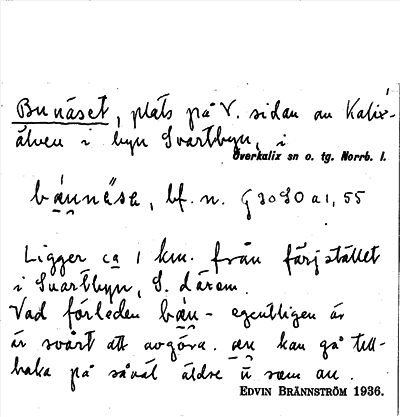 Bunäset, plats på V. sidan av Kalix-
älven i byn Svartbyn, i
Överkalix sn o. tg. Norrb. l.
bän̯näsa, bf. n. G 3090 a1, 55
Ligger ca 1 km. från färjstället
i Svartbyn, S. därom.
Vad förleden bän̯- egentligen är
är svårt att avgöra. än̯ kan gå till-
baka på såväl äldre ū som au.
EDVIN BRÄNNSTRÖM 1936.